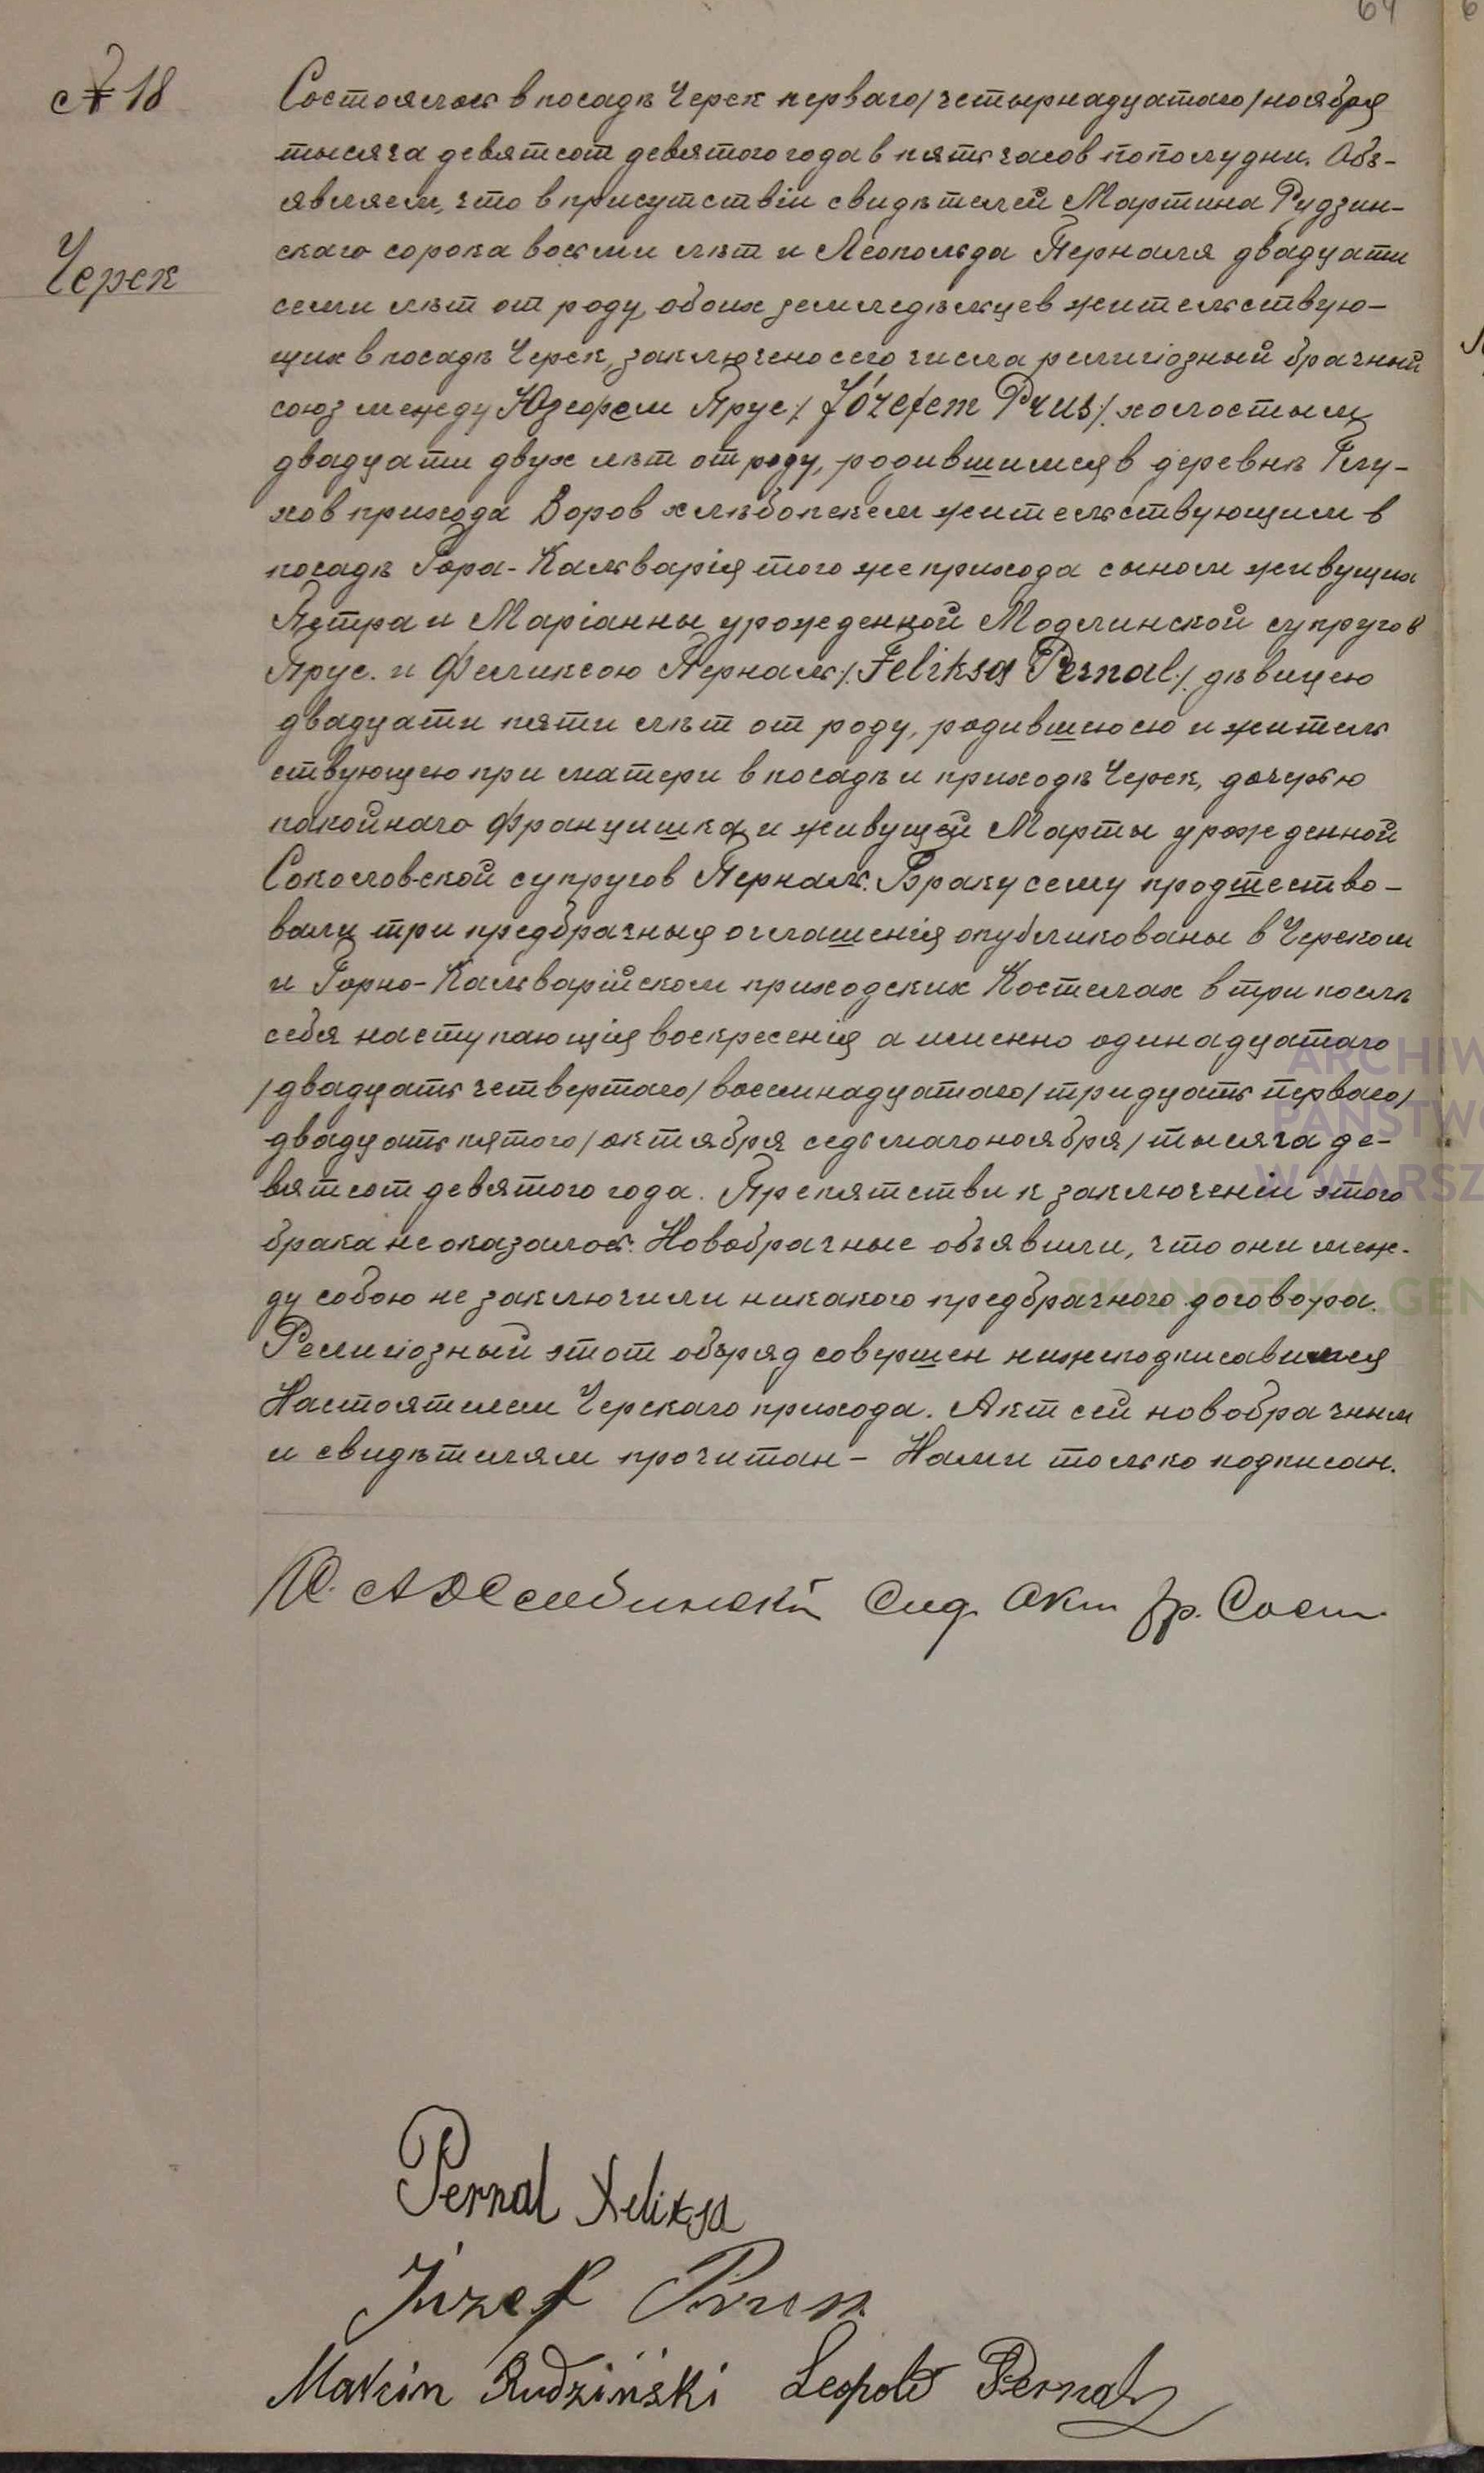 64
№ 18
Черск
Состоялось в посадѣ Черск перваго/четырнадцатаго/ноября
тысяча девятсот девятого года в пять часов пополудни. Объ-
являем, что в присутствіи свидѣтелей Мартина Рудзин-
скаго сорока восьми лѣт и Леопольда Перналя двадцати
семи лѣт от роду, обоих земледѣльцев жительствую-
щих в посадѣ Черск, заключено сего числа религіозный брачный
союз между Юзефом Прус /. Józefem Prus ./ холостым,
двадцати двух лѣт от роду, родившимся в деревнѣ Глу-
хов прихода Воров хлѣбопекем жительствующим в
посадѣ Гора-Кальварія того же прихода сыном живущих
Петра и Маріанны урожденной Модлинской супругов
Прус. и Феликсою Перналь /. Feliksa Pernal ./ дѣвицею
двадцати пяти лѣт от роду, родившеюсю и житель
ствующею при матери в посадѣ и приходѣ Черск, дочерью
покойнаго Францишка и живущей Марты урожденной
Соколовской супругов Перналь. Браку сему продшество-
вали три предбрачныя оглашенія опубликованы в Черском
и Горно-Кальварійском приходских Костелах в три послѣ
себя наступающія воскресенія а именно одинадцатаго
/двадцать четвертаго/ восемнадцатаго/тридцать перваго/
двадцать пятого/октября седьмаго ноября/тысяча де-
вятсот девятого года. Препятстви к заключеніи этого
брака не оказалось. Новобрачные объявили, что они меж-
ду собою не заключили никакого предбрачного договора.
Религіозный этот обряд совершен нижеподписавшимся
Настоятелем Черскаго прихода. Акт сей новобрачным
и свидѣтелям прочитан - Нами только подписан.
Сод. Акт гр. Сост.
Pernal Feliksa
Józef Prus
Marcin Rudziński Leopold Pernal
ARCHIW
PAŃSTWO
W WARSZ
SKANOTEKA GEN